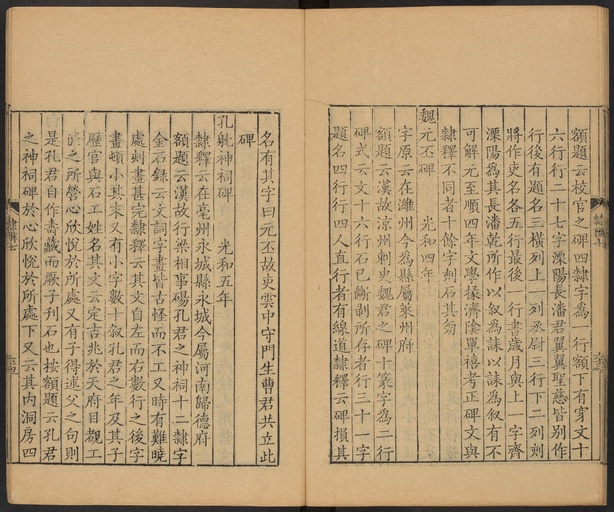 額題云校官之碑四隸字為一行額下有穿文十
六行行二十七字溧陽長潘君翼翼聖慈皆別作
行後有題名三橫列上一列丞尉三行下二列剡
將作吏名各五行最後一行書歲月與上一字齊
溧陽為其長潘乾所作以叙為誄以誄為叙有不
可解元至順四年文學掾濟陰單禧考正碑文與
隸釋不同者十餘字刻石其旁
魏元丕碑 光和四年
字原云在濰州今為縣屬萊州府
額題云漢故涼州刺史魏君之碑十篆字為二行
碑式云文十六行石已斷剝所存者行三十一字
題名四行行四人直行者有線道隸釋云碑損其
名有其字曰元丕故吏雲中守門生曹君共立此
碑
孔耽神祠碑 光和五年
隸釋云在亳州永城縣永城今屬河南歸德府
額題云漢故行梁相事碭孔君之神祠十二隸字
金石錄云文詞字畫皆古怪而不工又時有難曉
處刻畫甚完隸釋云其文自左而右數行之後字
畫頓小其末又有小字數十叙孔君之年及其子
歷官與石工姓名其文云定吉兆於天府目覩工
匠之所營心欣悅於所處又有子得述父之句則
是孔君自作壽藏而厥子刊石也按額題云孔君
之神祠碑於心欣悅於所處下又云其內洞房四